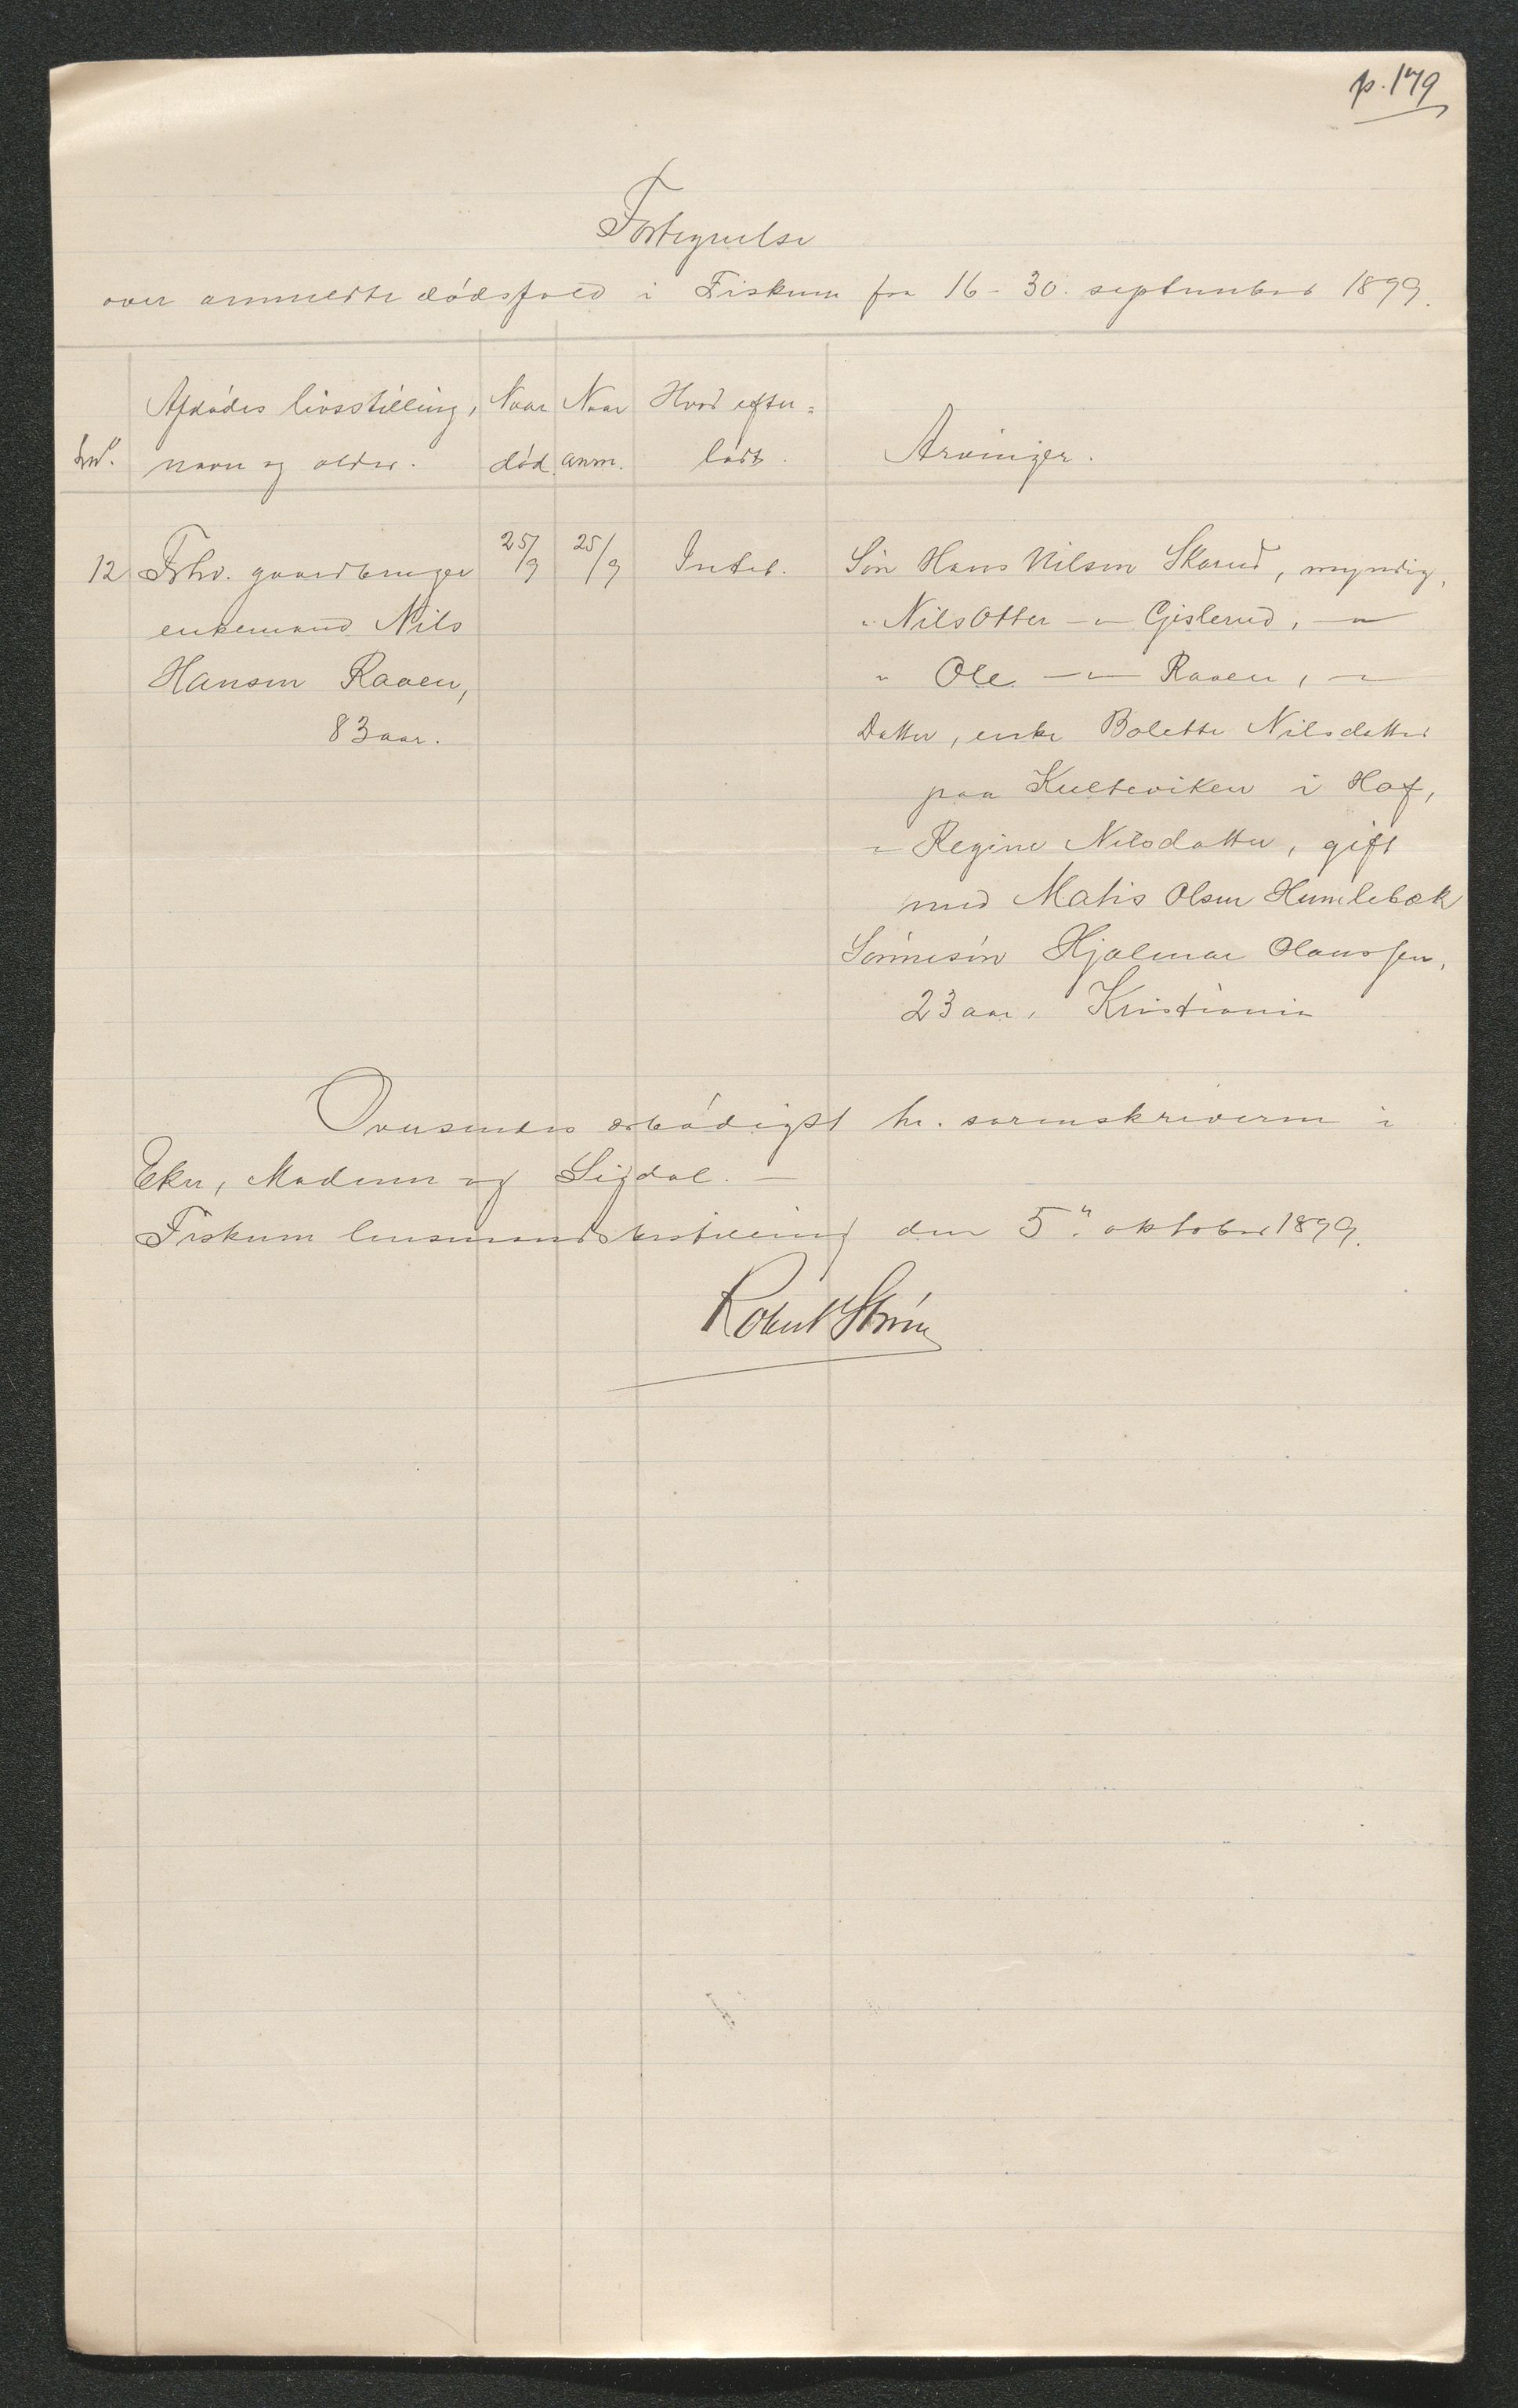 p. 179
Fortegnelse
over anmeldte dødsfald i Fiskum fra 16 - 30. september 1899.
Afdødes livsstilling, Naar Naar Hvad efter=
Lnr. navn og alder. død anm. ladt. Arvinger.
12 Fhv. gaardbruger 25/9 25/9 Intet. Søn Hans Nilsen Skarud, myndig,
enkemand Nils " Nils Otter -"- Gislerud, -"-
Hansen Raaen, " Ole -"- Raaen, -"-
83 aar. Datter, enke Bolette Nilsdatter
paa Kulteviken i Hof,
" Regine Nilsdatter, gift
med Matis Olsen Humlebæk
Sønnesøn Hjalmar Olaussen,
23 aar, Kristiania
Oversendes ærbødigst hr. sorenskriveren i
Eker, Modum og Sigdal. -
Fiskum lensmandsbestilling den 5" oktober 1899.
Robert Strøm